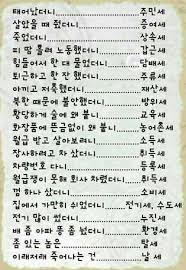 태어났더니................주민세
살았을 때 줬더니........증여세
죽었더니..................상속세
피 땀 흘려 노동했더니......갑근세
힘들어서 한 대 물었더니....담배세
퇴근하고 한 잔 했더니......주류세
아끼고 저축했더니..........재산세
북한 때문에 불안했더니.....방위세
황당하게 술에 왜 붙니......교육세
화장품에 뜬금없이 왜 붙니...농어촌세
월급 받고 살아보려니........소득세
장사하려고 차 샀더니........취득세
차량번호 다니................등록세
월급쟁이 못해 회사 차렸더니...취득세
껌 하나 샀더니..............소비세
집에서 가만히 쉬었더니.....전기세, 수도세
전기 많이 썼더니............누진세
배 좀 아파 똥 좀 눴더니.....환경세
좀 있는 놈은................탈세
이래저래 죽어나는 건........날 세